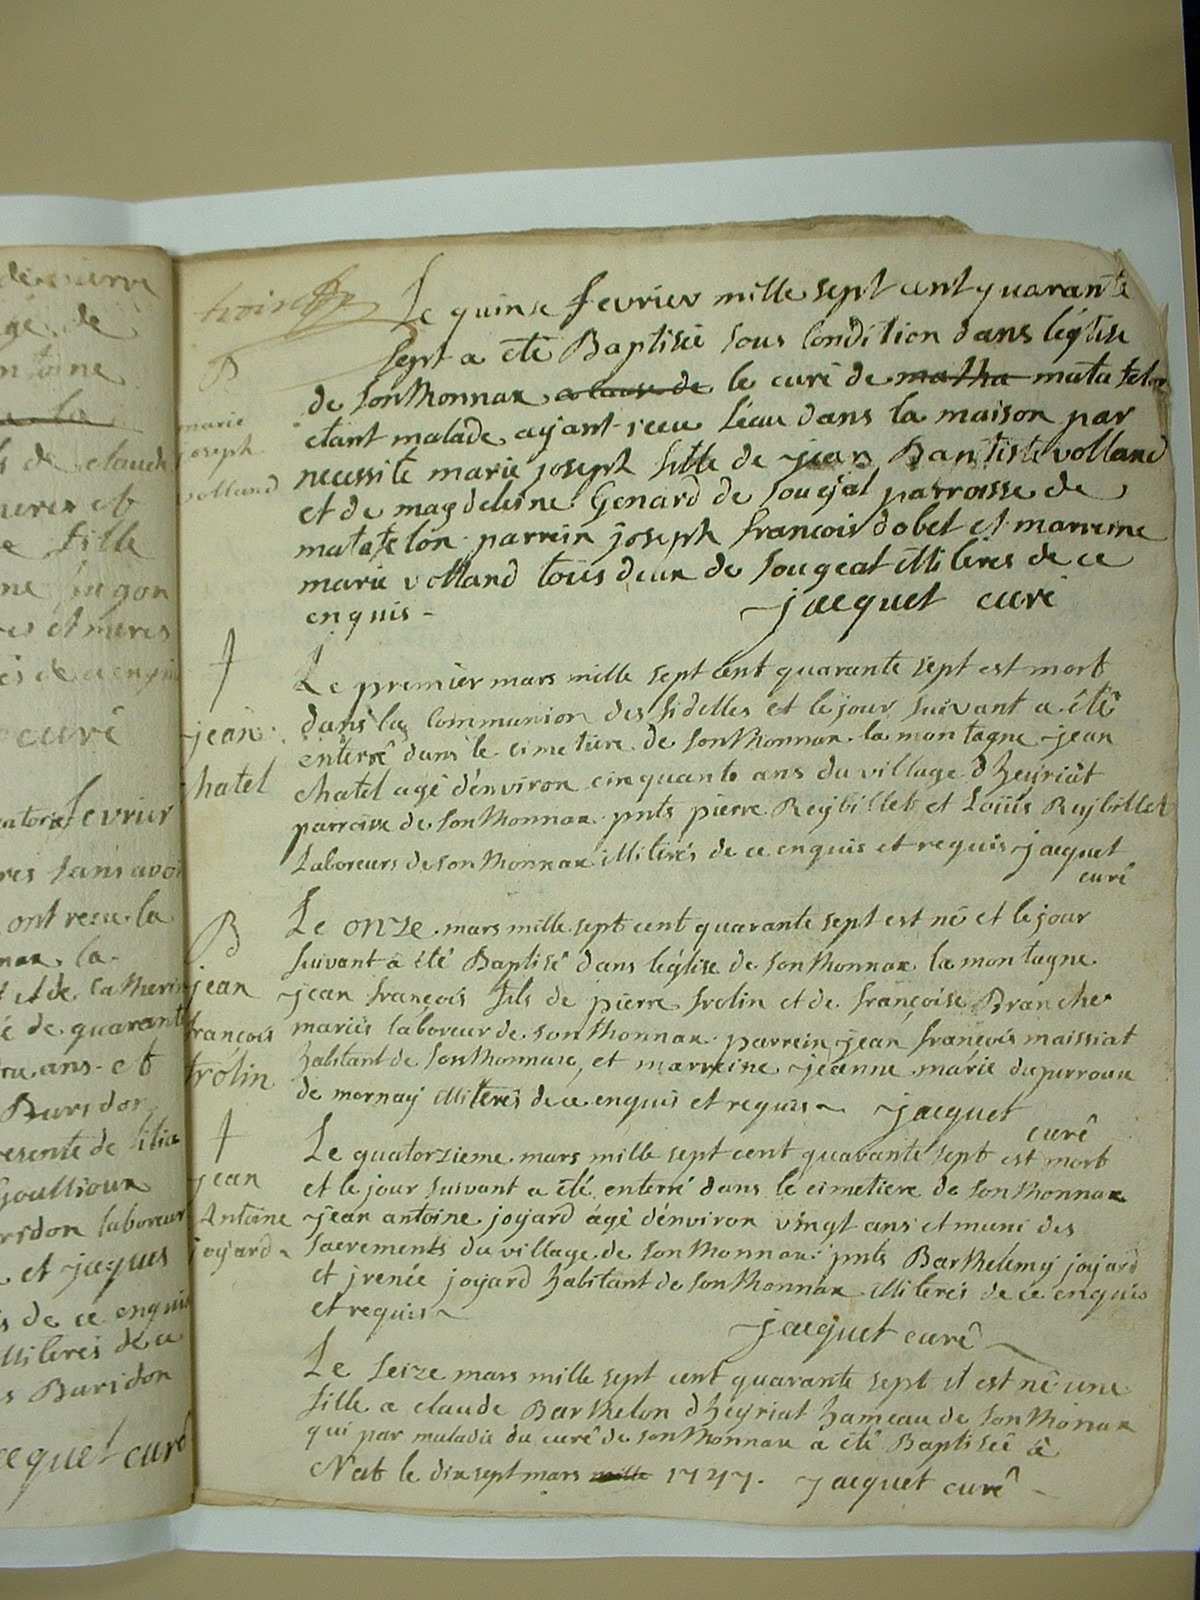 de pierre
agé de
antoine
a la
fils de claude
meres et
fille
jngon
peres et meres
és de ce enquis
curé
quatorze fevrier
sans avoir
ont receu la
la
et de Catherine
é de quarante
ans et
Bursdon
presente de
Goullioux
laboreur
et jacques
és de ce enquis
illiterés de ce
Buridon
jacquet curé
trois
Le quinze fevrier mille sept cent quarante
sept a été Baptisée sous Condition dans léglise
de sonthonnax a cause de le curé de matha matafelon
étant malade ayant reeu l'eau dans la maison par
necessité marie joseph fille de jean Bantiste volland
et de magdeleine Genard de sougeat parroisse de
matafelon parrein joseph françois dobet et marreine
marie volland tous deux de sougeat illiterés de ce
enquis -
jacquet curé
B
marie
joseph
volland
Le premier mars mille sept cent quarante sept est mort
dans la Communion des fidelles et le jour suivant a été
enterré dans le cimetiere de sonthonnax la montagne jean
chatel agé d'environ cinquante ans du village d'heyriat
parroisse de sonthonnax pnts pierre Reybillet et Loüis Reybillet
Laboreurs de sonthonnax illiterés de ce enquis et requis jacquet
curé
†
jean
chatel
Le onze mars mille sept cent quarante sept est né et le jour
suivant a été Baptisé dans léglise de sonthonnax la montagne
jean françois fils de pierre frolin et de françoise Branche
mariés laboreur de sonthonnax parrein jean françois maissiat
habitant de sonthonnax, et marreine jeanne marie duperreau
de mornay illiterés de ce enquis et requis ~ jacquet
curé
B
jean
françois
frolin
Le quatorzieme mars mille sept cent quarante sept est mort
et le jour suivant a été enterré dans le cimetiere de sonthonnax
jean antoine joyard agé d'environ vingt ans et muni des
sacrements du village de sonthonnax pnts Barthelemy joyard
et jrenée joyard habitant de sonthonnax illiterés de ce enquis
et requis ~
jacquet curé
†
jean
Antoine
joyard
Le seize mars mille sept cent quarante sept il est né une
fille a claude Barthelon d'heyriat hameau de sonthonax
qui par maladie du curé de sonthonnax a été Baptisée à
Nat le dix sept mars mille 1747. jacquet curé